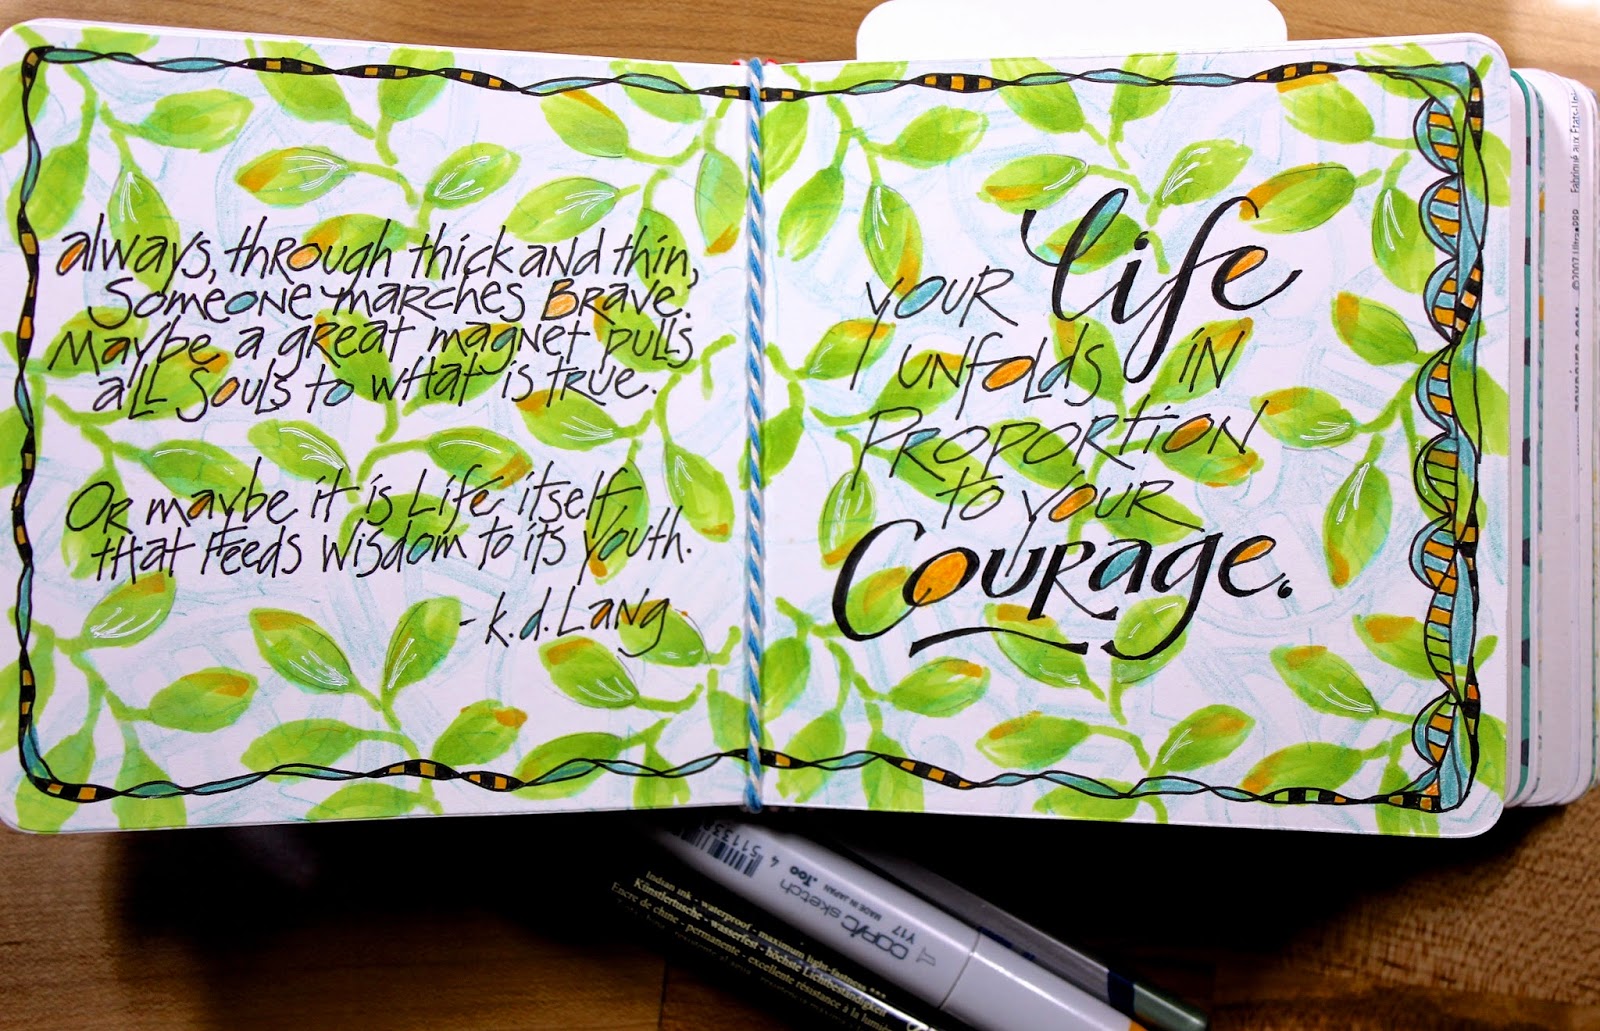 always, through thick and thin,
someone marches brave.
Maybe a great magnet pulls
all souls to what is true.
Or maybe it is life itself
that feeds wisdom to its youth.
- k.d. Lang
your life
unfolds in
proportion
to your
Courage.
Fabriqué aux États-Uni
©2007 Ultra●PRO
4 511338
COPIC sketch
.Too
MADE IN JAPAN
Y17
Indian ink - waterproof - maximum light-fastness ***
Künstlertusche - wasserfest - höchste Lichtbeständigkeit
Encre de chine - permanente - excellente résistance à la lumi